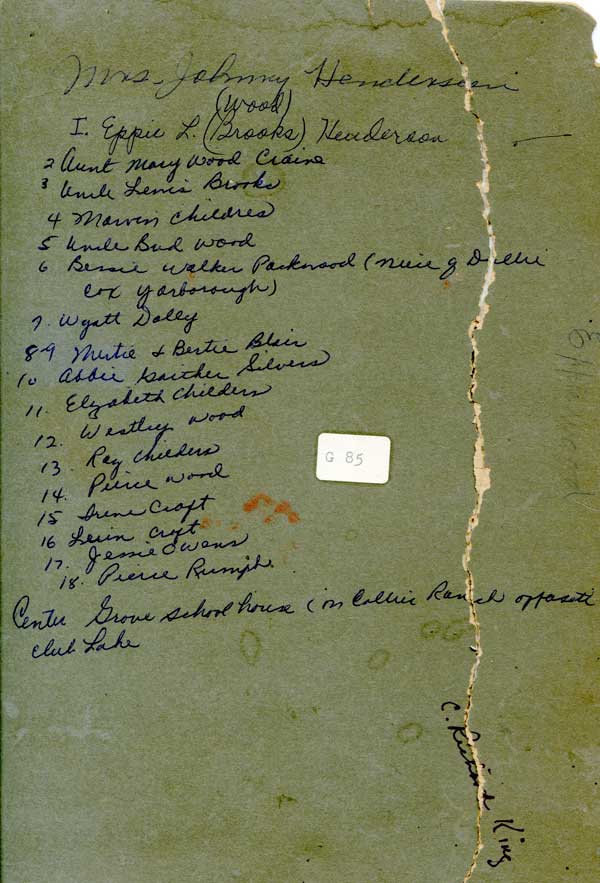 Mrs. Johnny Henderson
(Wood)
I. Eppie L. (Brooks) Henderson
2 Aunt Mary Wood Craine
3 Uncle Lewis Brooks
4 Marvin Childres
5 Uncle Bud Wood
6 Bessie Walker Packwood (niece of Dollie
Cox Yarborough)
7. Wyatt Dolly
8-9 Mertie & Bertie Blair
10 Abbie Silvers
11. Elizabeth Childers
12. Westley Wood
13. Ray Childers
14. Pierce Wood
15 Irene Croft
16 Croft
17. Jessie Owens
18. Pierce Rumph.
G 85
Center Grove school house (on Collier Ranch opposite
club Lake
C. Richard King